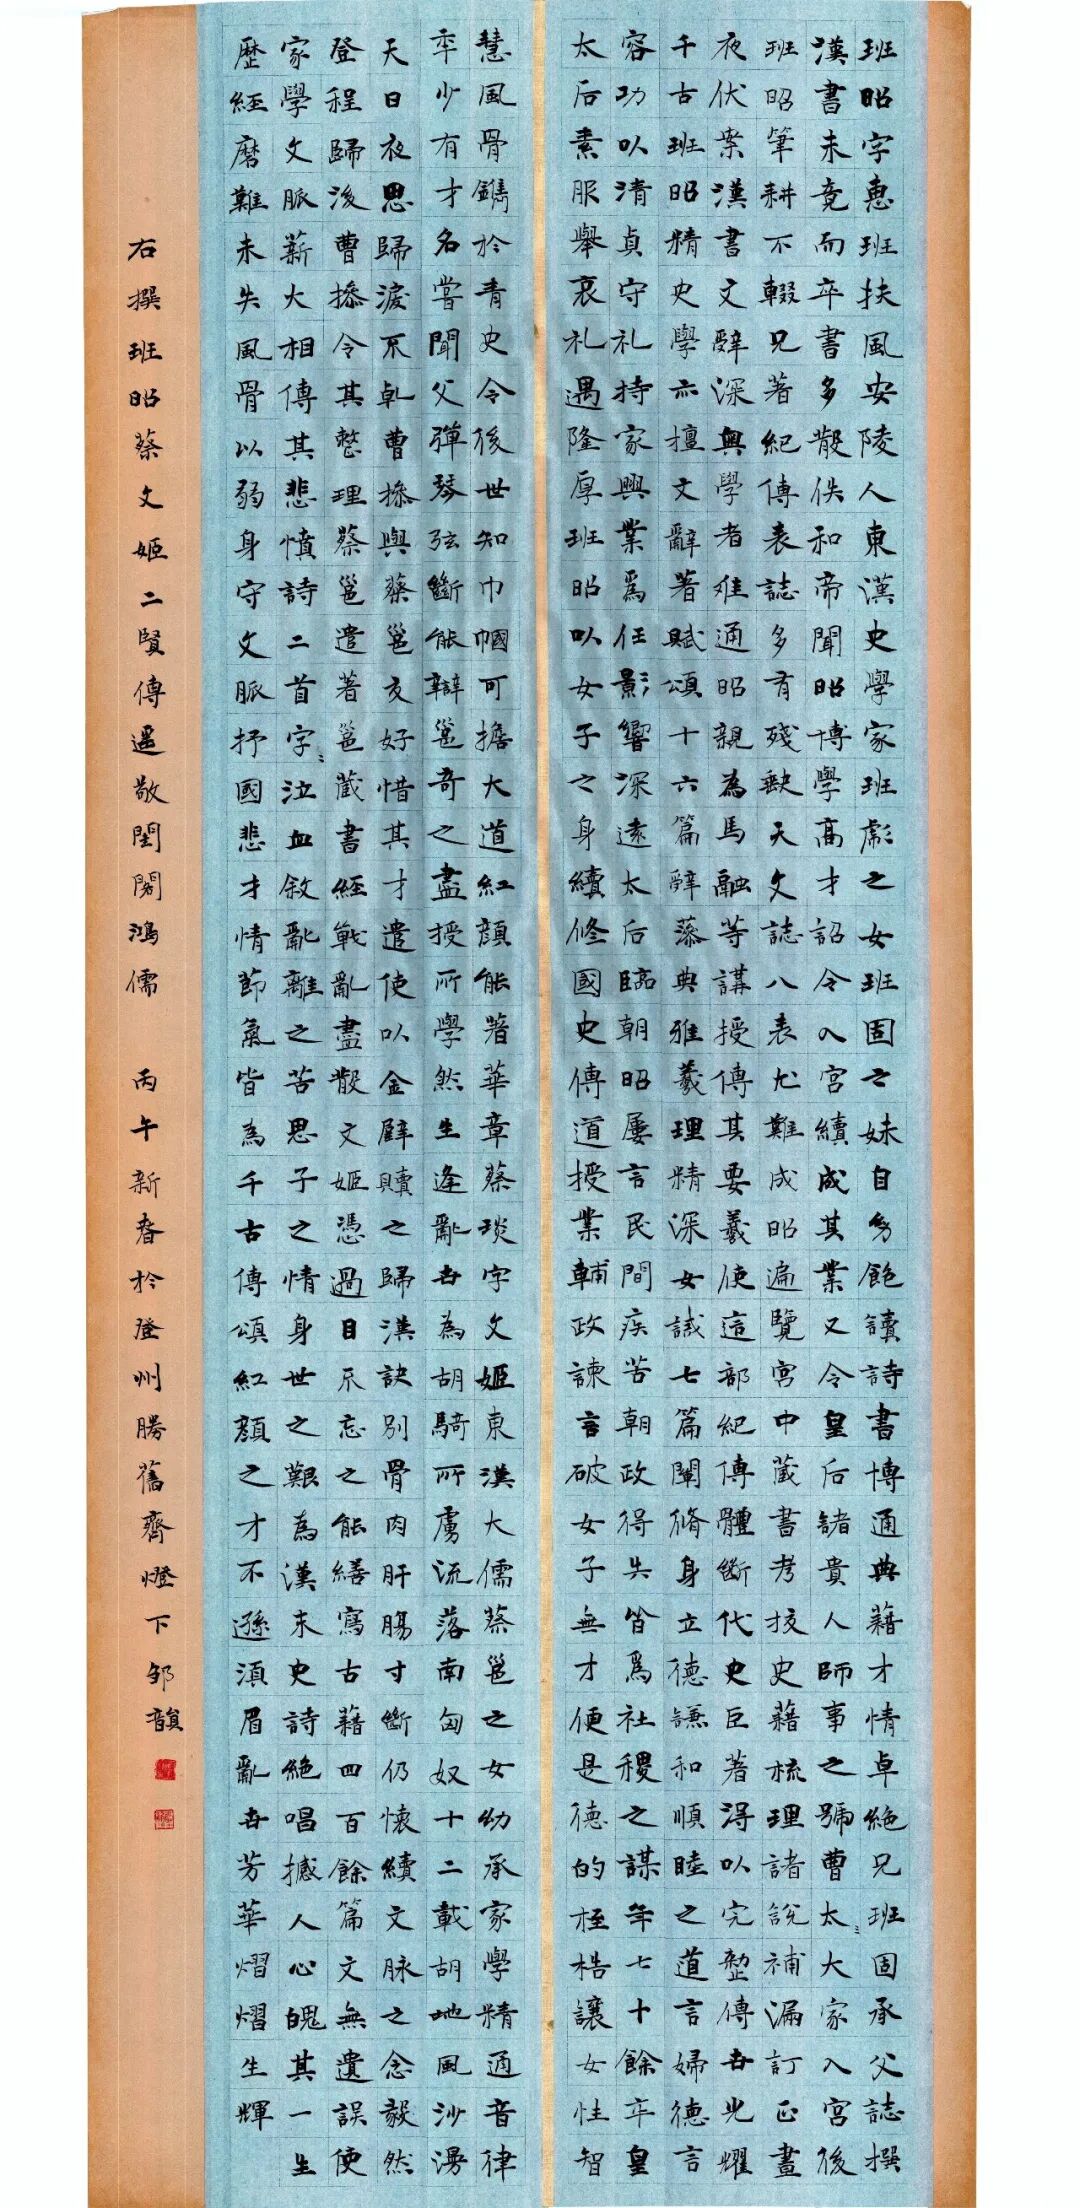 班昭字惠班扶風安陵人東漢史學家班彪之女班固之妹自幼飽讀詩書博通典藉才情卓絕兄班固承父誌撰
漢書未竟而卒書多散佚和帝聞昭博學高才詔令入宮續成其業又令皇后諸貴人師事之號曹太〻大家入宮後
班昭筆耕不輟兄著紀傳表誌多有殘缺天文誌八表尤難成昭遍覽宮中藏書考挍史藉梳理諸說補漏訂正晝
夜伏案漢書文辭深奧學者难通昭親為馬融等講授傳其要義使這部紀傳體斷代史巨著得以完整傳世光耀
千古班昭精史學亦擅文辭著賦頌十六篇辭藻典雅義理精深女誡七篇闡脩身立德謙和順睦之道言婦德言
容功以清貞守礼持家興業爲任影響深遠太后臨朝昭屢言民間疾苦朝政得失皆爲社稷之謀年七十餘卒皇
太后素服舉哀礼遇隆厚班昭以女子之身續修國史傳道授業輔政諫言破女子無才便是德的桎梏讓女性智
慧風骨鐫於青史令後世知巾幗可擔大道紅顏能著華章蔡琰字文姬東漢大儒蔡邕之女幼承家學精通音律
年少有才名嘗聞父彈琴弦斷能辯邕奇之盡授所學然生逢亂世為胡騎所虜流落南匈奴十二載胡地風沙漫
天日夜思歸淚不乹曹操與蔡邕友好惜其才遣使以金壁贖之歸漢訣別骨肉肝腸寸斷仍懷續文脉之念毅然
登程歸後曹操令其整理蔡邕遺著邕藏書經戰亂盡散文姬憑過目不忘之能繕寫古藉四百餘篇文無遺誤使
家學文脈薪火相傳其悲憤詩二首字〻泣血敘亂離之苦思子之情身世之艱為漢末史詩絕唱撼人心魄其一生
歷經磨難未失風骨以弱身守文脈抒國悲才情節氣皆為千古傳頌紅顏之才不遜須眉亂世芳華熠熠生輝
右撰班昭蔡文姬二賢傳遥敬閨閣鴻儒 丙午新春於登州勝舊齋燈下邹韻